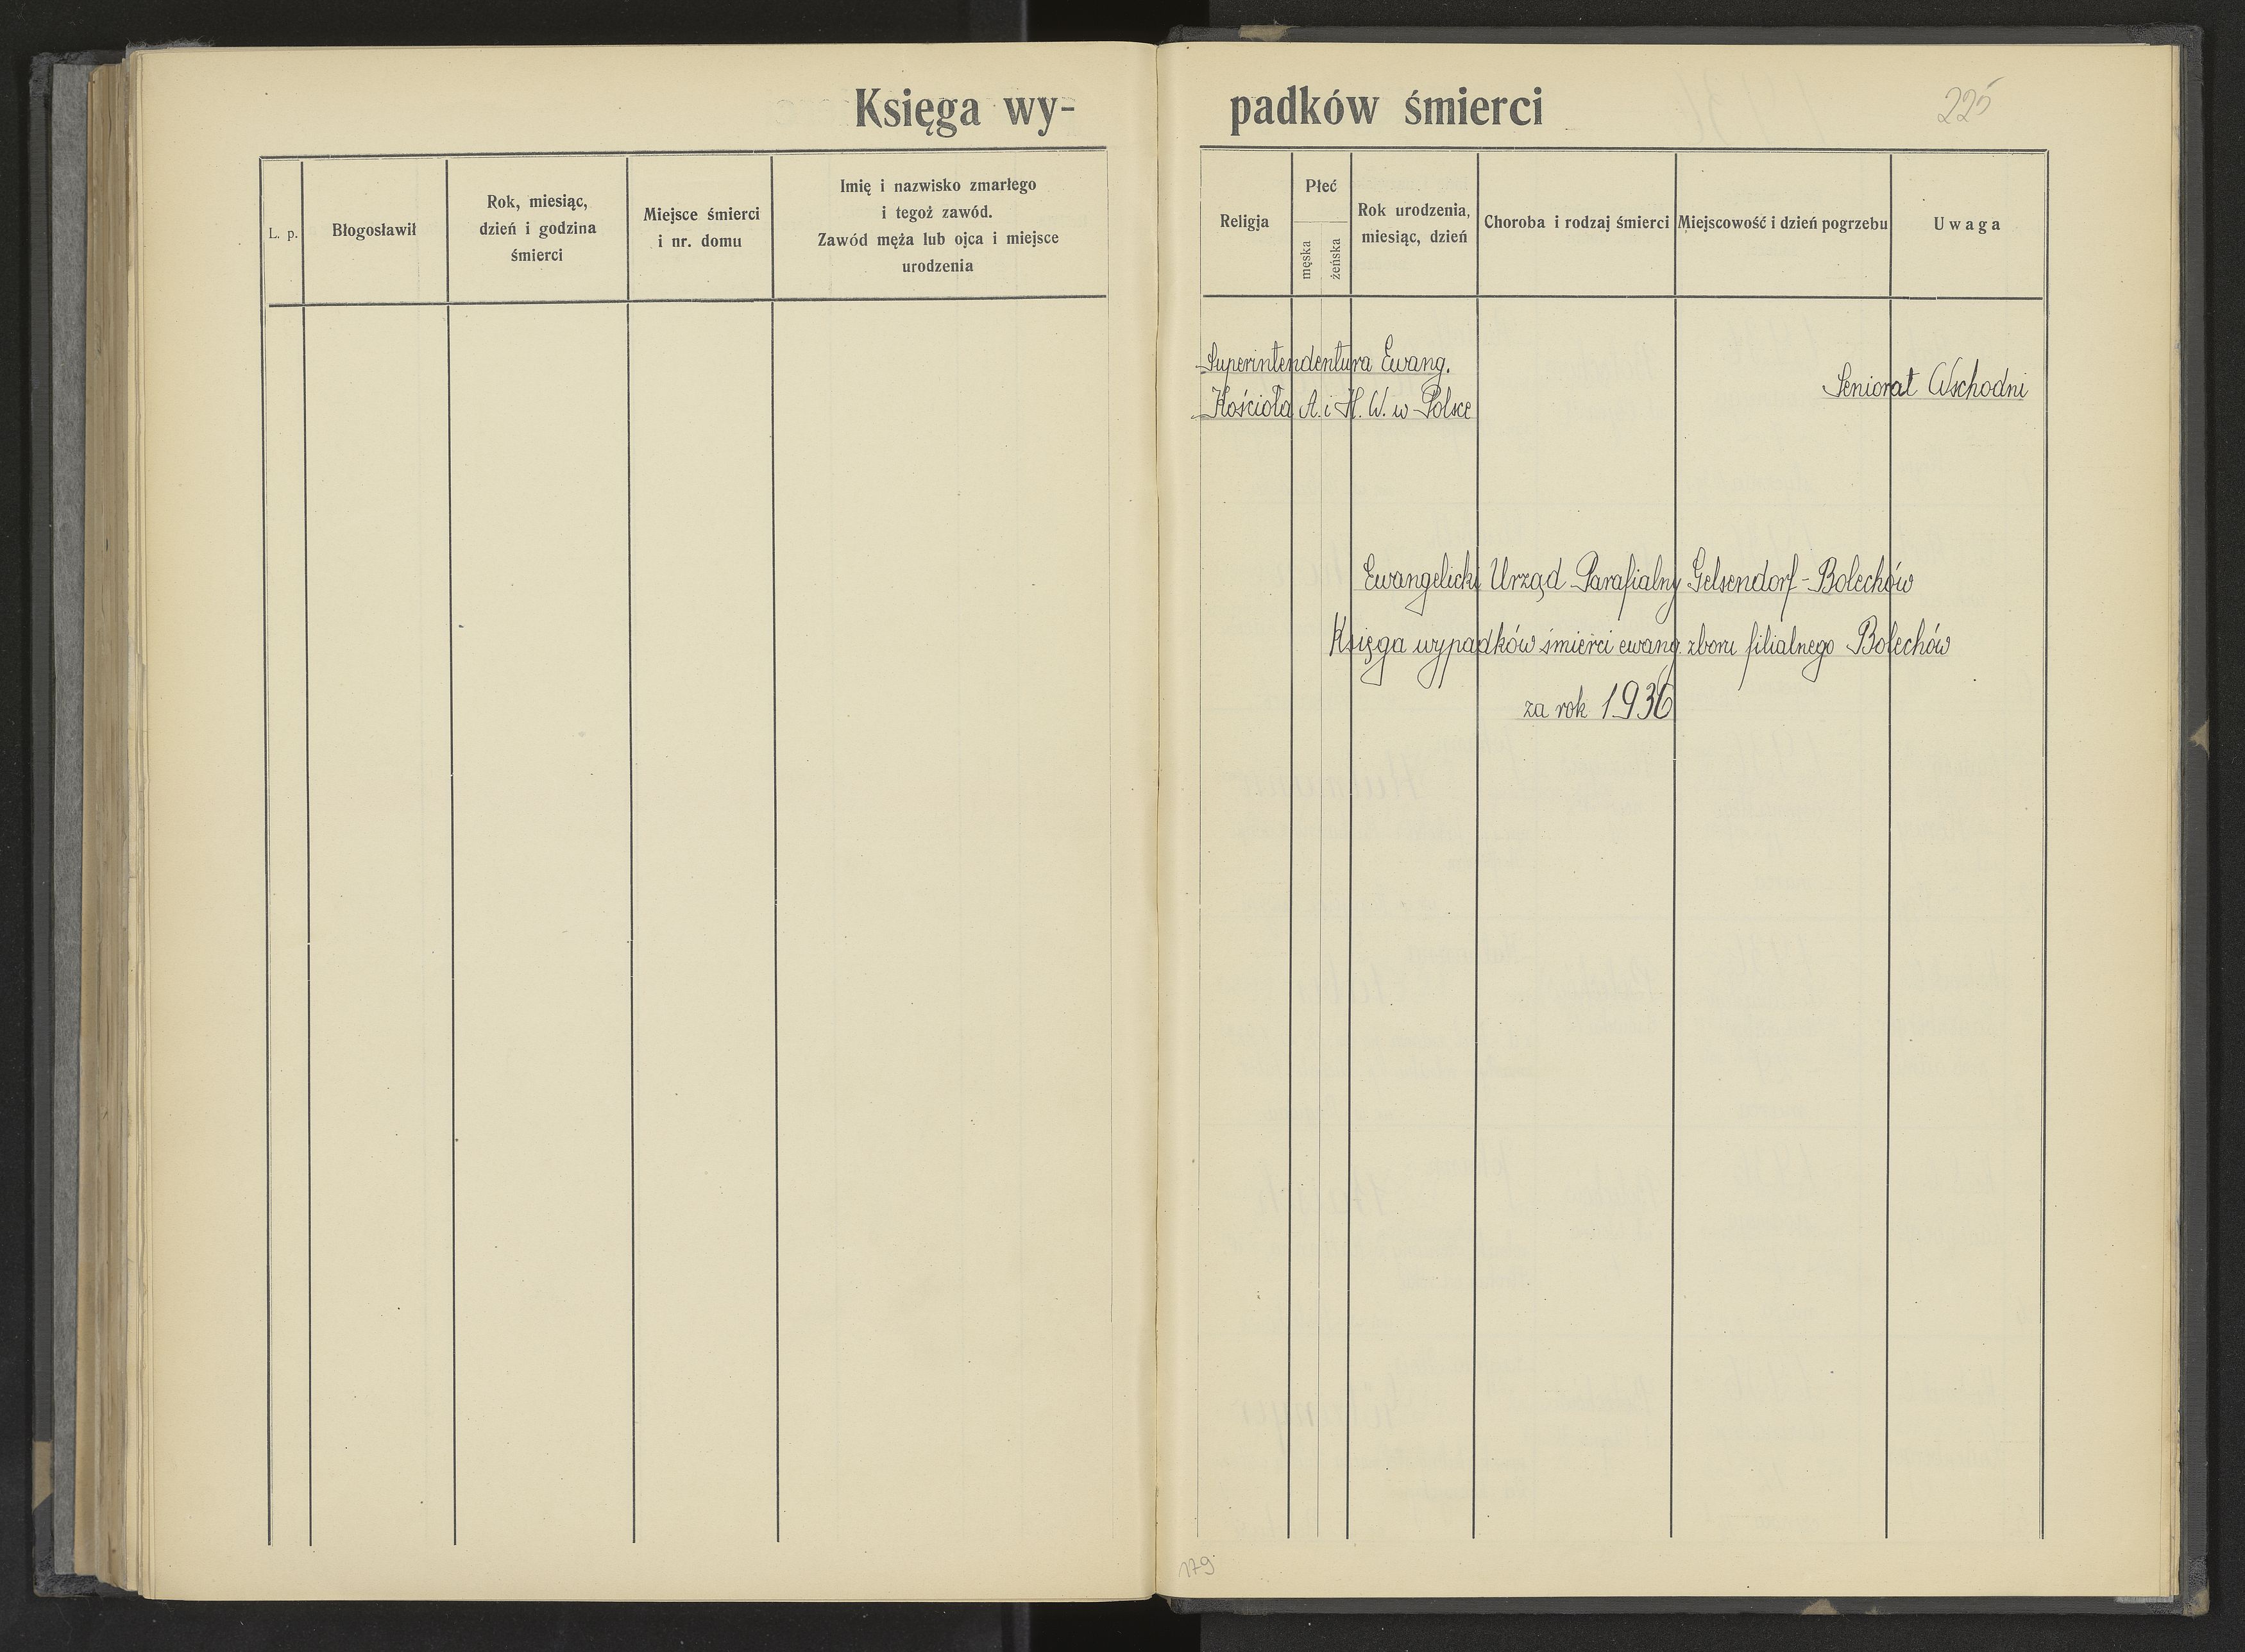 Księga wy-
L. p.
Błogosławił
Rok, miesiąc,
dzień i godzina
śmierci
Miejsce śmierci
i nr. domu
Imię i nazwisko zmarłego
i tegoż zawód.
Zawód męża lub ojca i miejsce
urodzenia
padków śmierci
225
Religja
Płeć
męska
żeńska
Rok urodzenia,
miesiąc, dzień
Choroba i rodzaj śmierci
Miejscowość i dzień pogrzebu
Uwaga
Superintendentura Ewang.
Kościoła A. i H. W. w Polsce
Seniorat Wschodni
Ewangelicki Urząd Parafialny Gelsendorf-Bolechów
Księga wypadków śmierci ewang. zboru filialnego Bolechów
za rok 1936
179